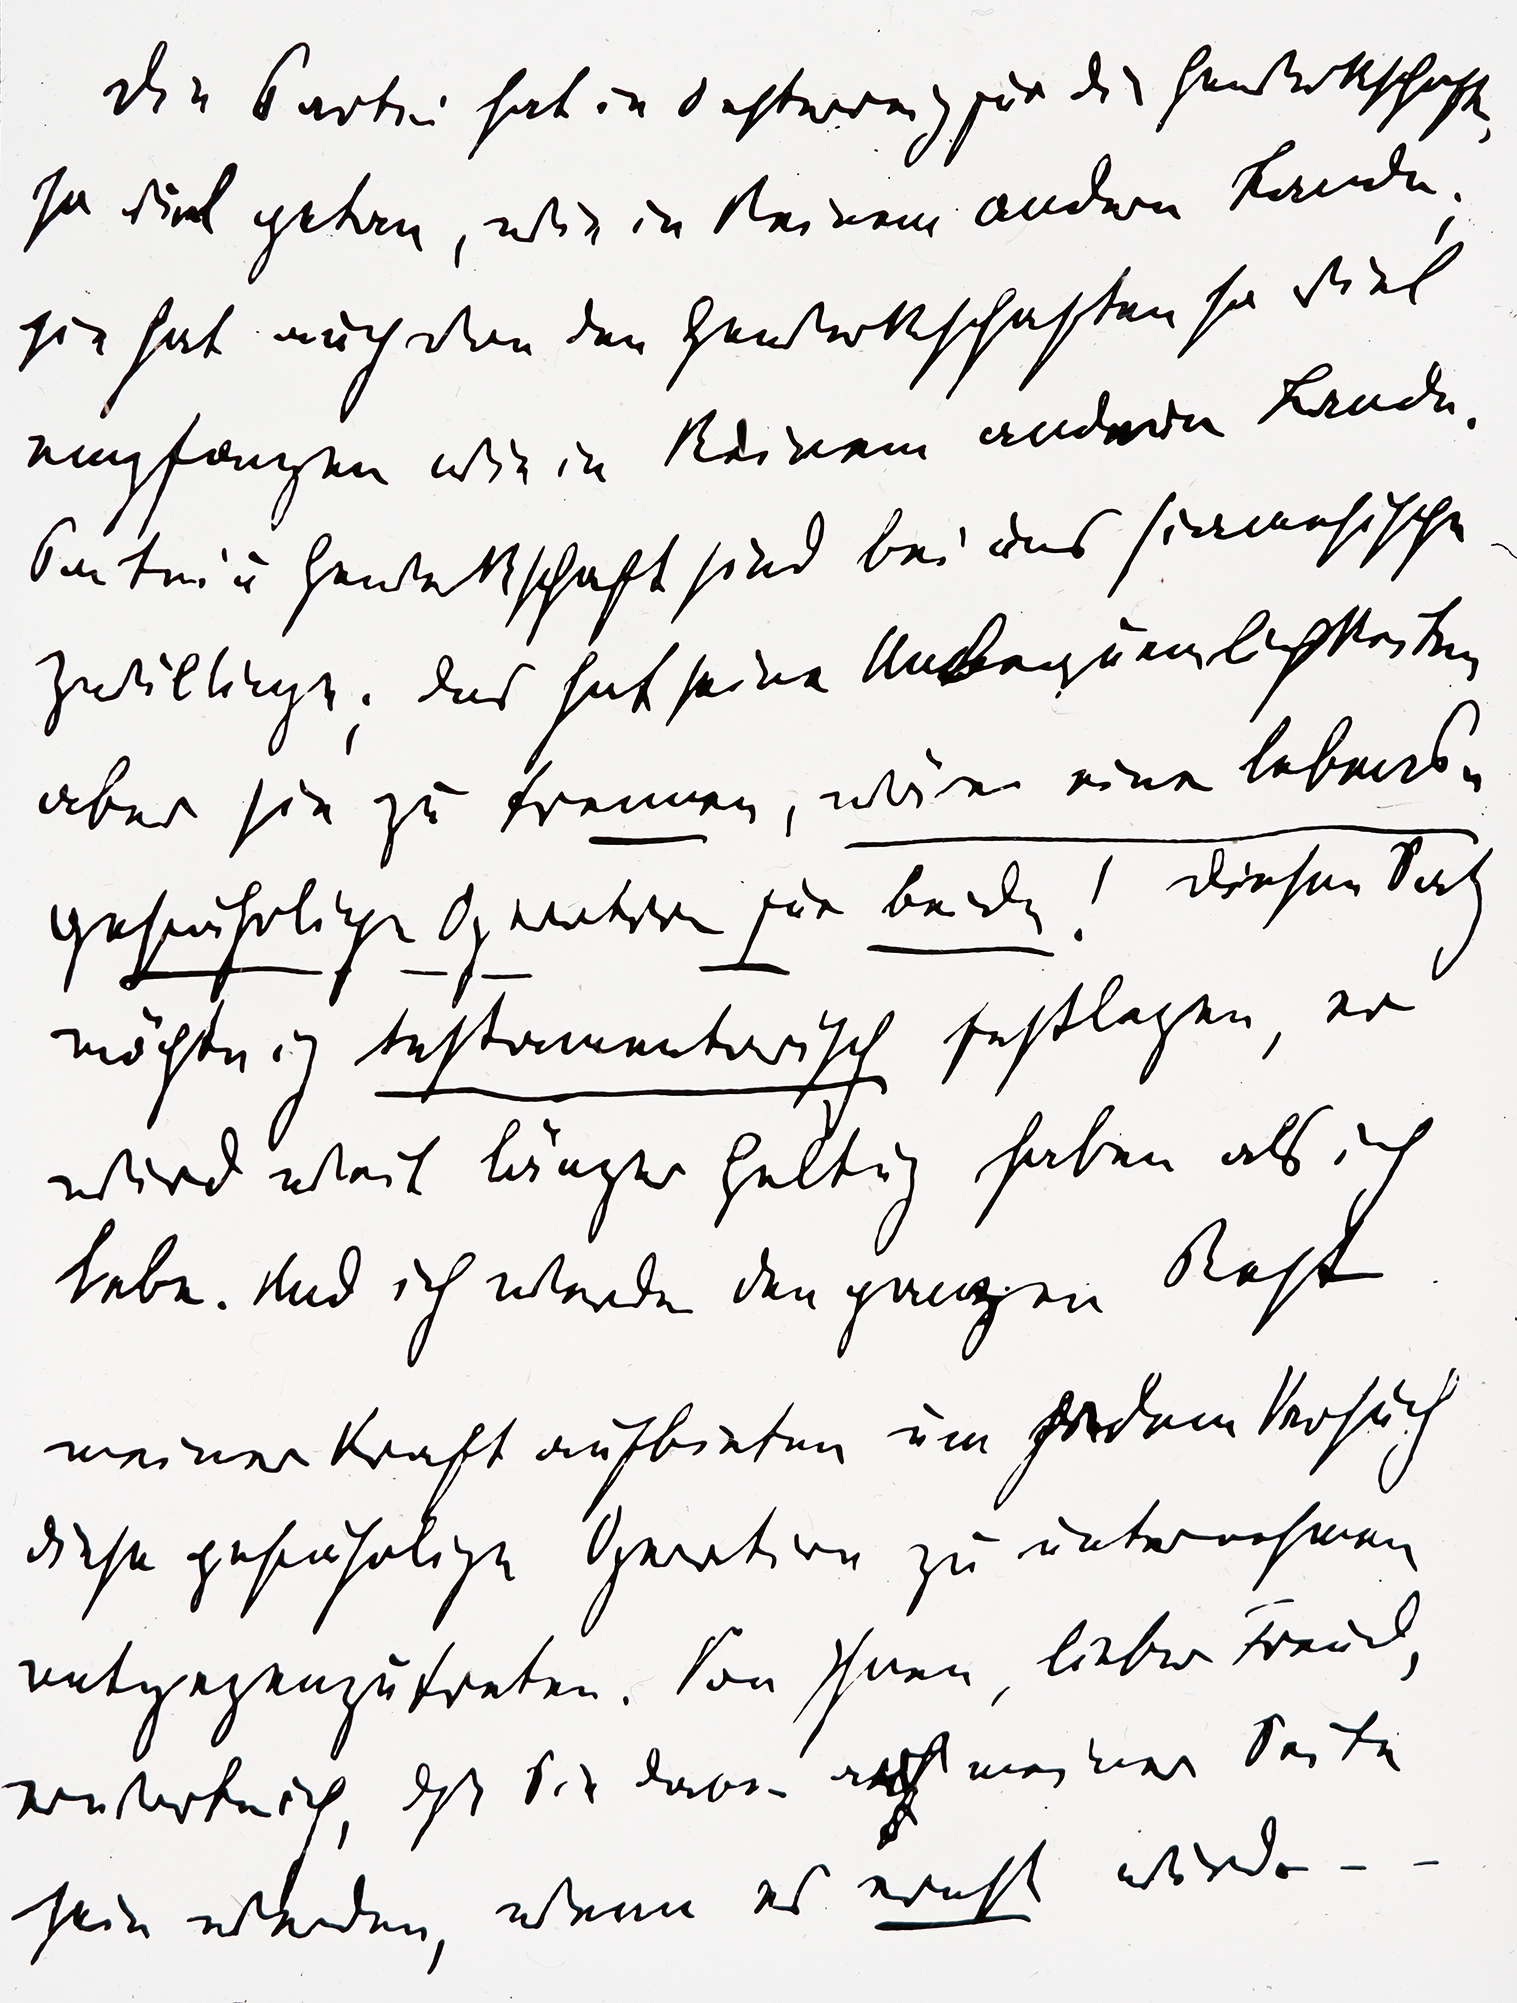 Die Partei hat in Oesterreich für die Gewerkschaften
so viel getan, wie in keinem andern Lande;
sie hat auch von den Gewerkschaften so viel
empfangen wie in keinem andern Lande.
Partei u Gewerkschaft sind bei uns siamesische
Zwillinge; das hat seine Unbequemlichkeiten
aber sie zu trennen, wäre eine lebens-
gefährliche Operation für beide! Diesen Satz
möchte ich testamentarisch festlegen, er
wird weit länger Geltung haben als ich
lebe. Und ich werde den ganzen Rest
meiner Kraft aufbieten um jedem Versuch
diese gefährliche Operation zu unternehmen
entgegenzutreten. Von Ihnen, lieber Freund,
erwarte ich, dß Sie dabei auf meiner Seite
sein werden, wenn es ernst würde - -